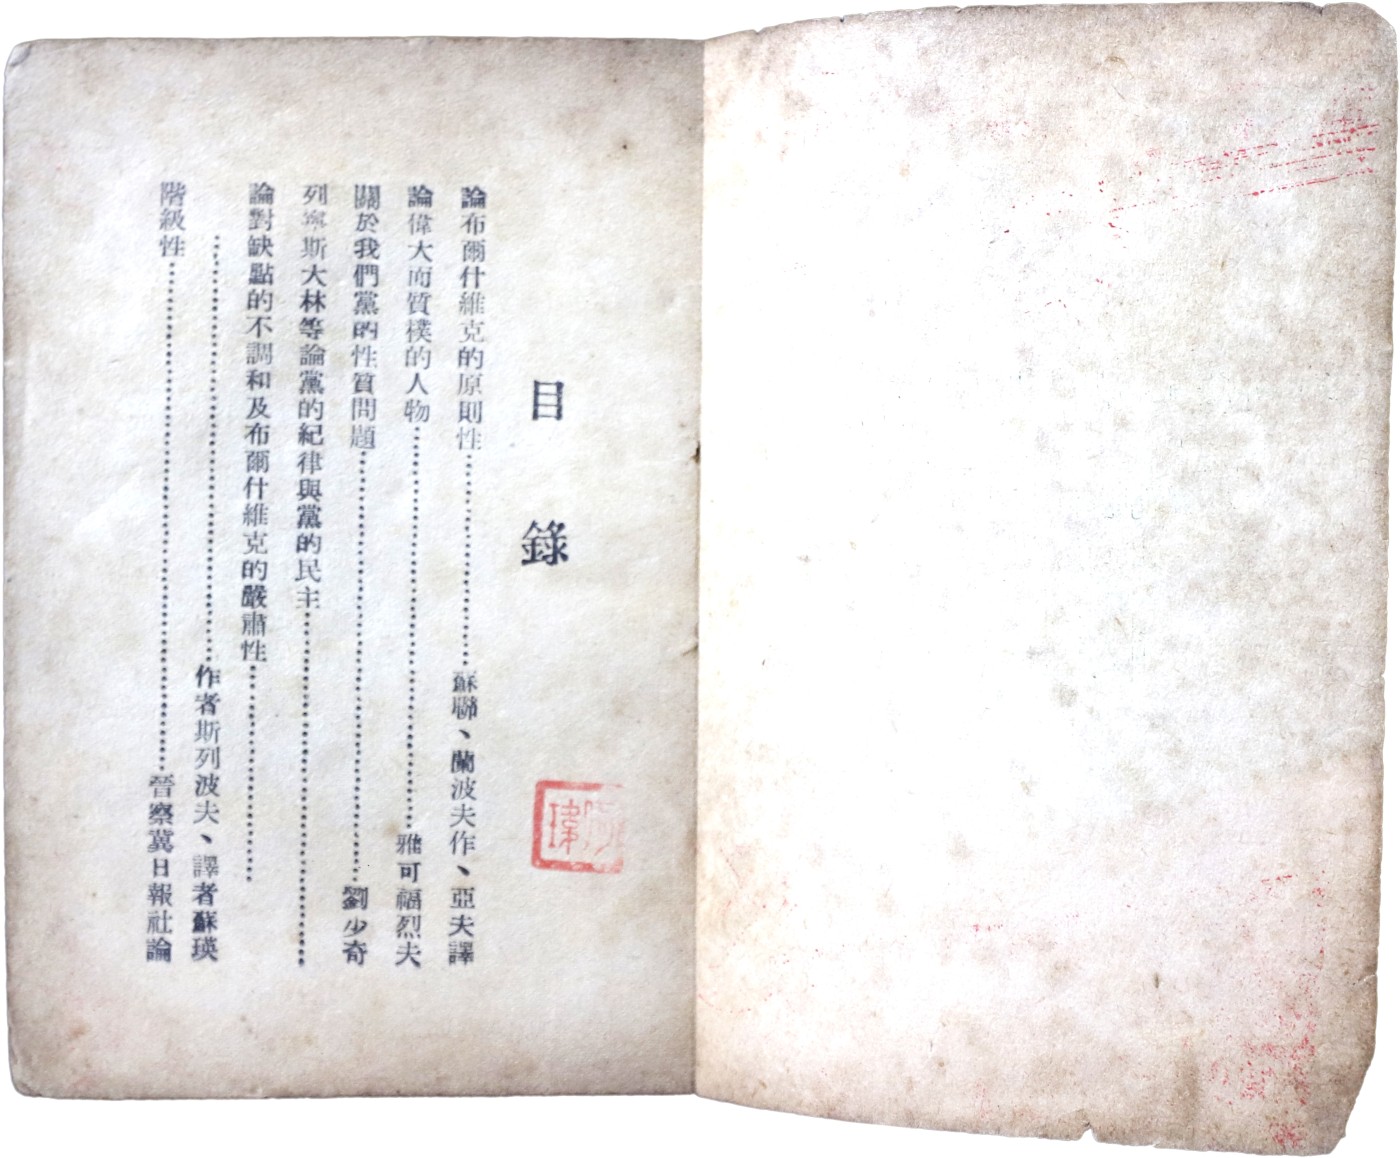 目錄
論布爾什維克的原則性……………………蘇聯、蘭波夫作、亞夫譯
論偉大而質樸的人物……………………雅可福烈夫
關於我們黨的性質問題……………………劉少奇
列寧斯大林等論黨的紀律與黨的民主……………………
論對缺點的不調和及布爾什維克的嚴肅性……………………
……………………作者斯列波夫、譯者蘇瑛
階級性……………………晉察冀日報社論